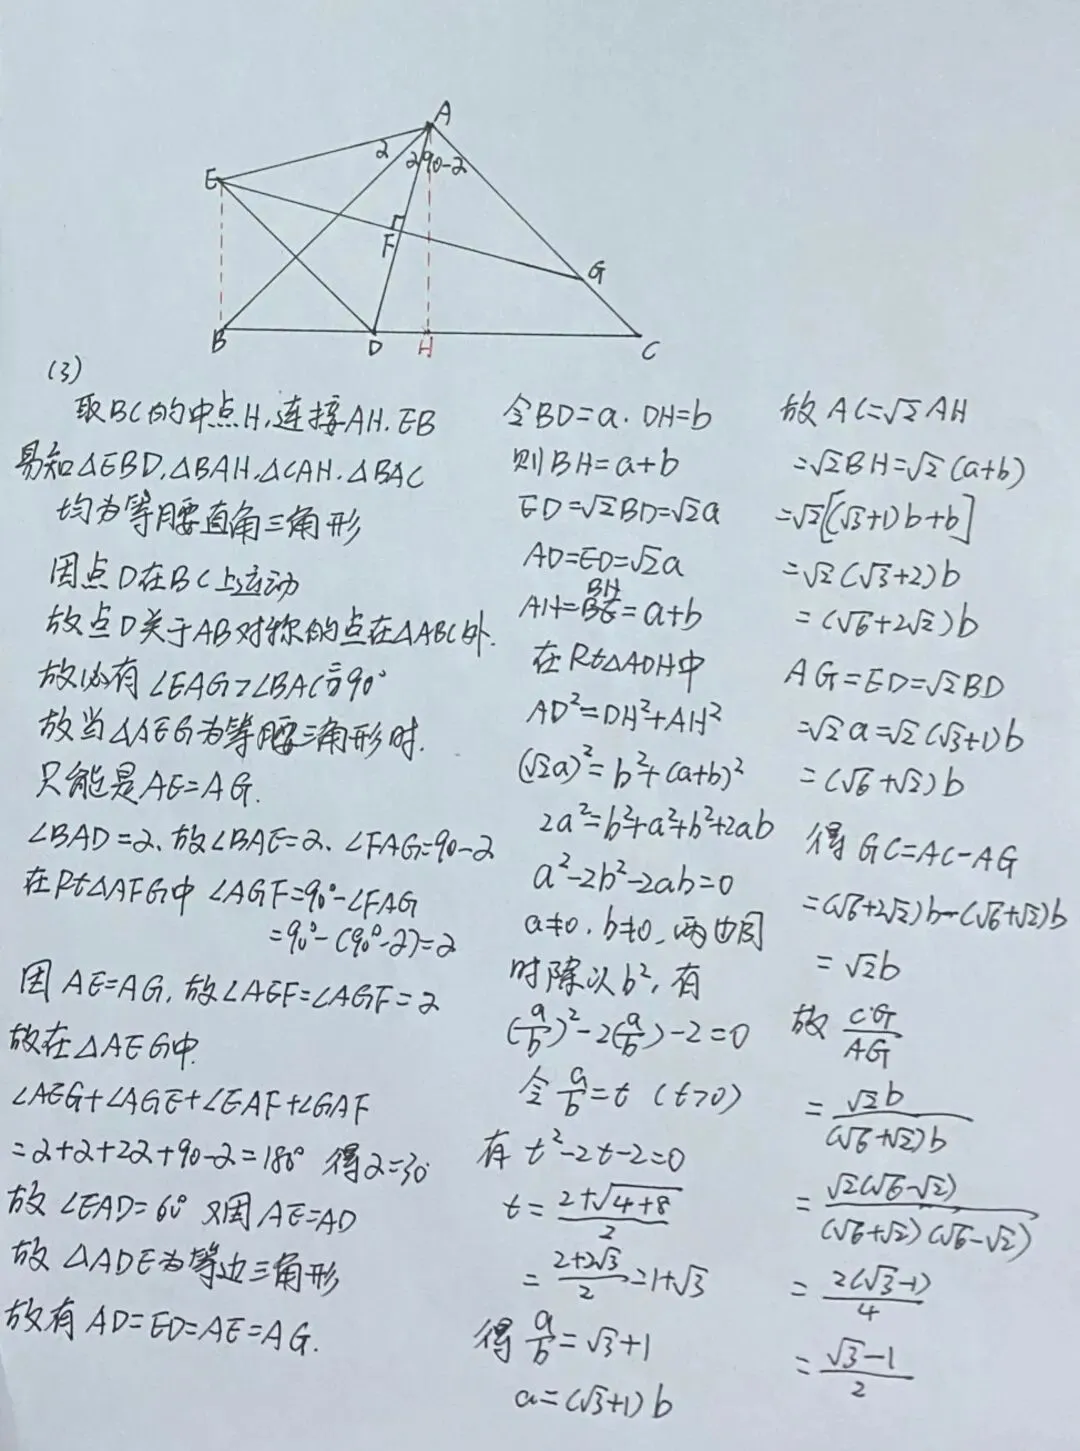 A
2
2
90-2
E
F
G
B
D
H
C
(3)
取BC的中点H,连接AH.EB
易知△EBD.△BAH.△CAH.△BAC
均为等腰直角三角形
因点D在BC上运动
故点D关于AB对称的点在△ABC外.
故必有∠EAG>∠BAC=90°
故当△AEG为等腰三角形时.
只能是AE=AG.
∠BAD=2、故∠BAE=2、∠FAG=90-2
在Rt△AFG中 ∠AGF=90°-∠FAG
=90°-(90°-2)=2
因AE=AG,故∠AEF=∠AGF=2
故在△AEG中.
∠AEG+∠AGE+∠EAF+∠GAF
=2+2+22+90-2=180° 得2=30°
故∠EAD=60° 又因AE=AD
故△ADE为等边三角形
故有AD=ED=AE=AG.
令BD=a.DH=b
则BH=a+b
ED=√2BD=√2a
AD=ED=√2a
BH
AH= =a+b
在Rt△ADH中
AD²=DH²+AH²
(√2a)²=b²+(a+b)²
2a²=b²+a²+b²+2ab
a²-2b²-2ab=0
a≠0.b≠0、两边同
时除以b²,有
(a/b)²-2(a/b)-2=0
令a/b=t (t>0)
有t²-2t-2=0
t=(2+√(4+8))/2
=(2+2√3)/2=1+√3
得a/b=√3+1
a=(√3+1)b
故AC=√2AH
=√2BH=√2(a+b)
=√2[(√3+1)b+b]
=√2(√3+2)b
=(√6+2√2)b
AG=ED=√2BD
=√2a=√2(√3+1)b
=(√6+√2)b
得GC=AC-AG
=(√6+2√2)b-(√6+√2)b
=√2b
故CG/AG
=√2b/((√6+√2)b)
=√2(√6-√2)/((√6+√2)(√6-√2))
=2(√3-1)/4
=(√3-1)/2